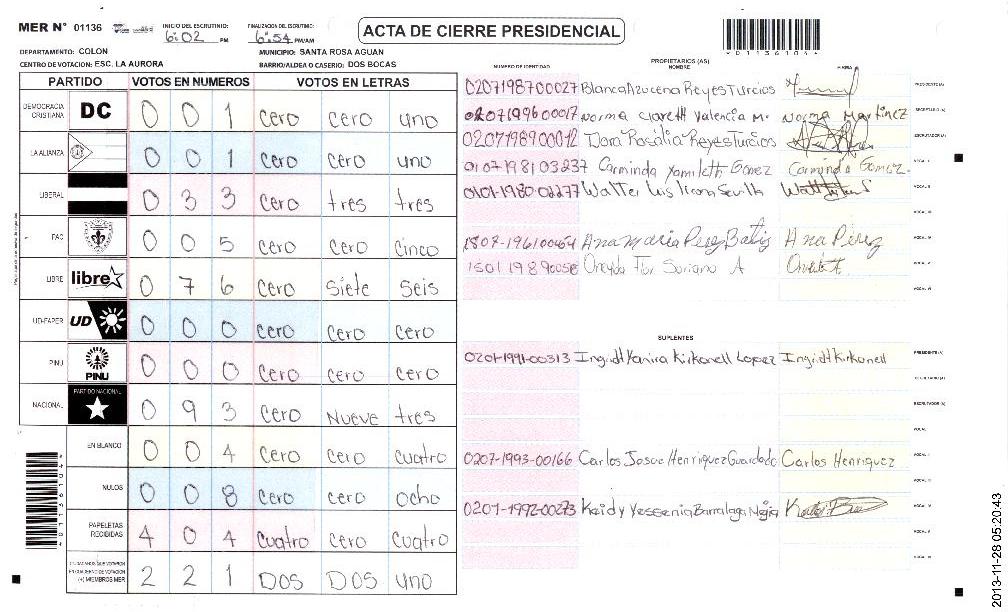 MER N° 01136
INICIO DEL ESCRUTINIO: 6:02 PM
FINALIZACION DEL ESCRUTINIO: 6:54 PM/AM
ACTA DE CIERRE PRESIDENCIAL
DEPARTAMENTO: COLON
MUNICIPIO: SANTA ROSA AGUAN
CENTRO DE VOTACION: ESC. LA AURORA
BARRIO/ALDEA O CASERIO: DOS BOCAS
PARTIDO VOTOS EN NUMEROS VOTOS EN LETRAS
DEMOCRACIA CRISTIANA DC 0 0 1 cero cero uno
LA ALIANZA 0 0 1 cero cero uno
LIBERAL 0 3 3 cero tres tres
PAC 0 0 5 cero cero cinco
LIBRE libre 0 7 6 cero Siete Seis
UD-FAPER UD 0 0 0 cero cero cero
PINU PINU 0 0 0 cero cero cero
NACIONAL PARTIDO NACIONAL 0 9 3 cero Nueve tres
EN BLANCO 0 0 4 cero cero cuatro
NULOS 0 0 8 cero cero ocho
PAPELETAS RECIBIDAS 4 0 4 cuatro cero cuatro
CIUDADANOS QUE VOTARON EN CUADERNO DE VOTACION (+) MIEMBROS MER 2 2 1 DOS DOS uno
NUMERO DE IDENTIDAD
PROPIETARIOS (AS)
NOMBRE
FIRMA
0207198700027 Blanca Azucena Reyes Turcios PRESIDENTE (A)
0207199600017 Norma Clareth Valencia M. Norma Martinez SECRETARIO (A)
0207198900012 Dora Rosalia Reyes Turcios ESCRUTADOR (A)
0107198103237 Carminda Yamileth Gomez Carminda Gomez. VOCAL I
0101-1980-02277 Walter Luis VOCAL II
VOCAL III
Ana Maria Perez Batiz Ana Pérez VOCAL IV
Soriano A VOCAL V
VOCAL VI
SUPLENTES
0201-1991-00313 Ingridt Yanira Kirkonell Lopez Ingridt Kirkonell PRESIDENTE (A)
SECRETARIO (A)
ESCRUTADOR (A)
VOCAL I
0207-1993-00166 Carlos Josue Henriquez Guardado Carlos Henriquez VOCAL II
VOCAL III
0201-1992-00273 Keidy Yessenia Barralaga Mejia VOCAL IV
VOCAL V
VOCAL VI
2013-11-28 05:20:43